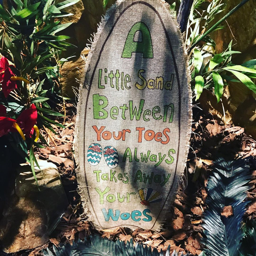 A
Little Sand
Between
Your Toes
Always
Takes Away
Your
Woes